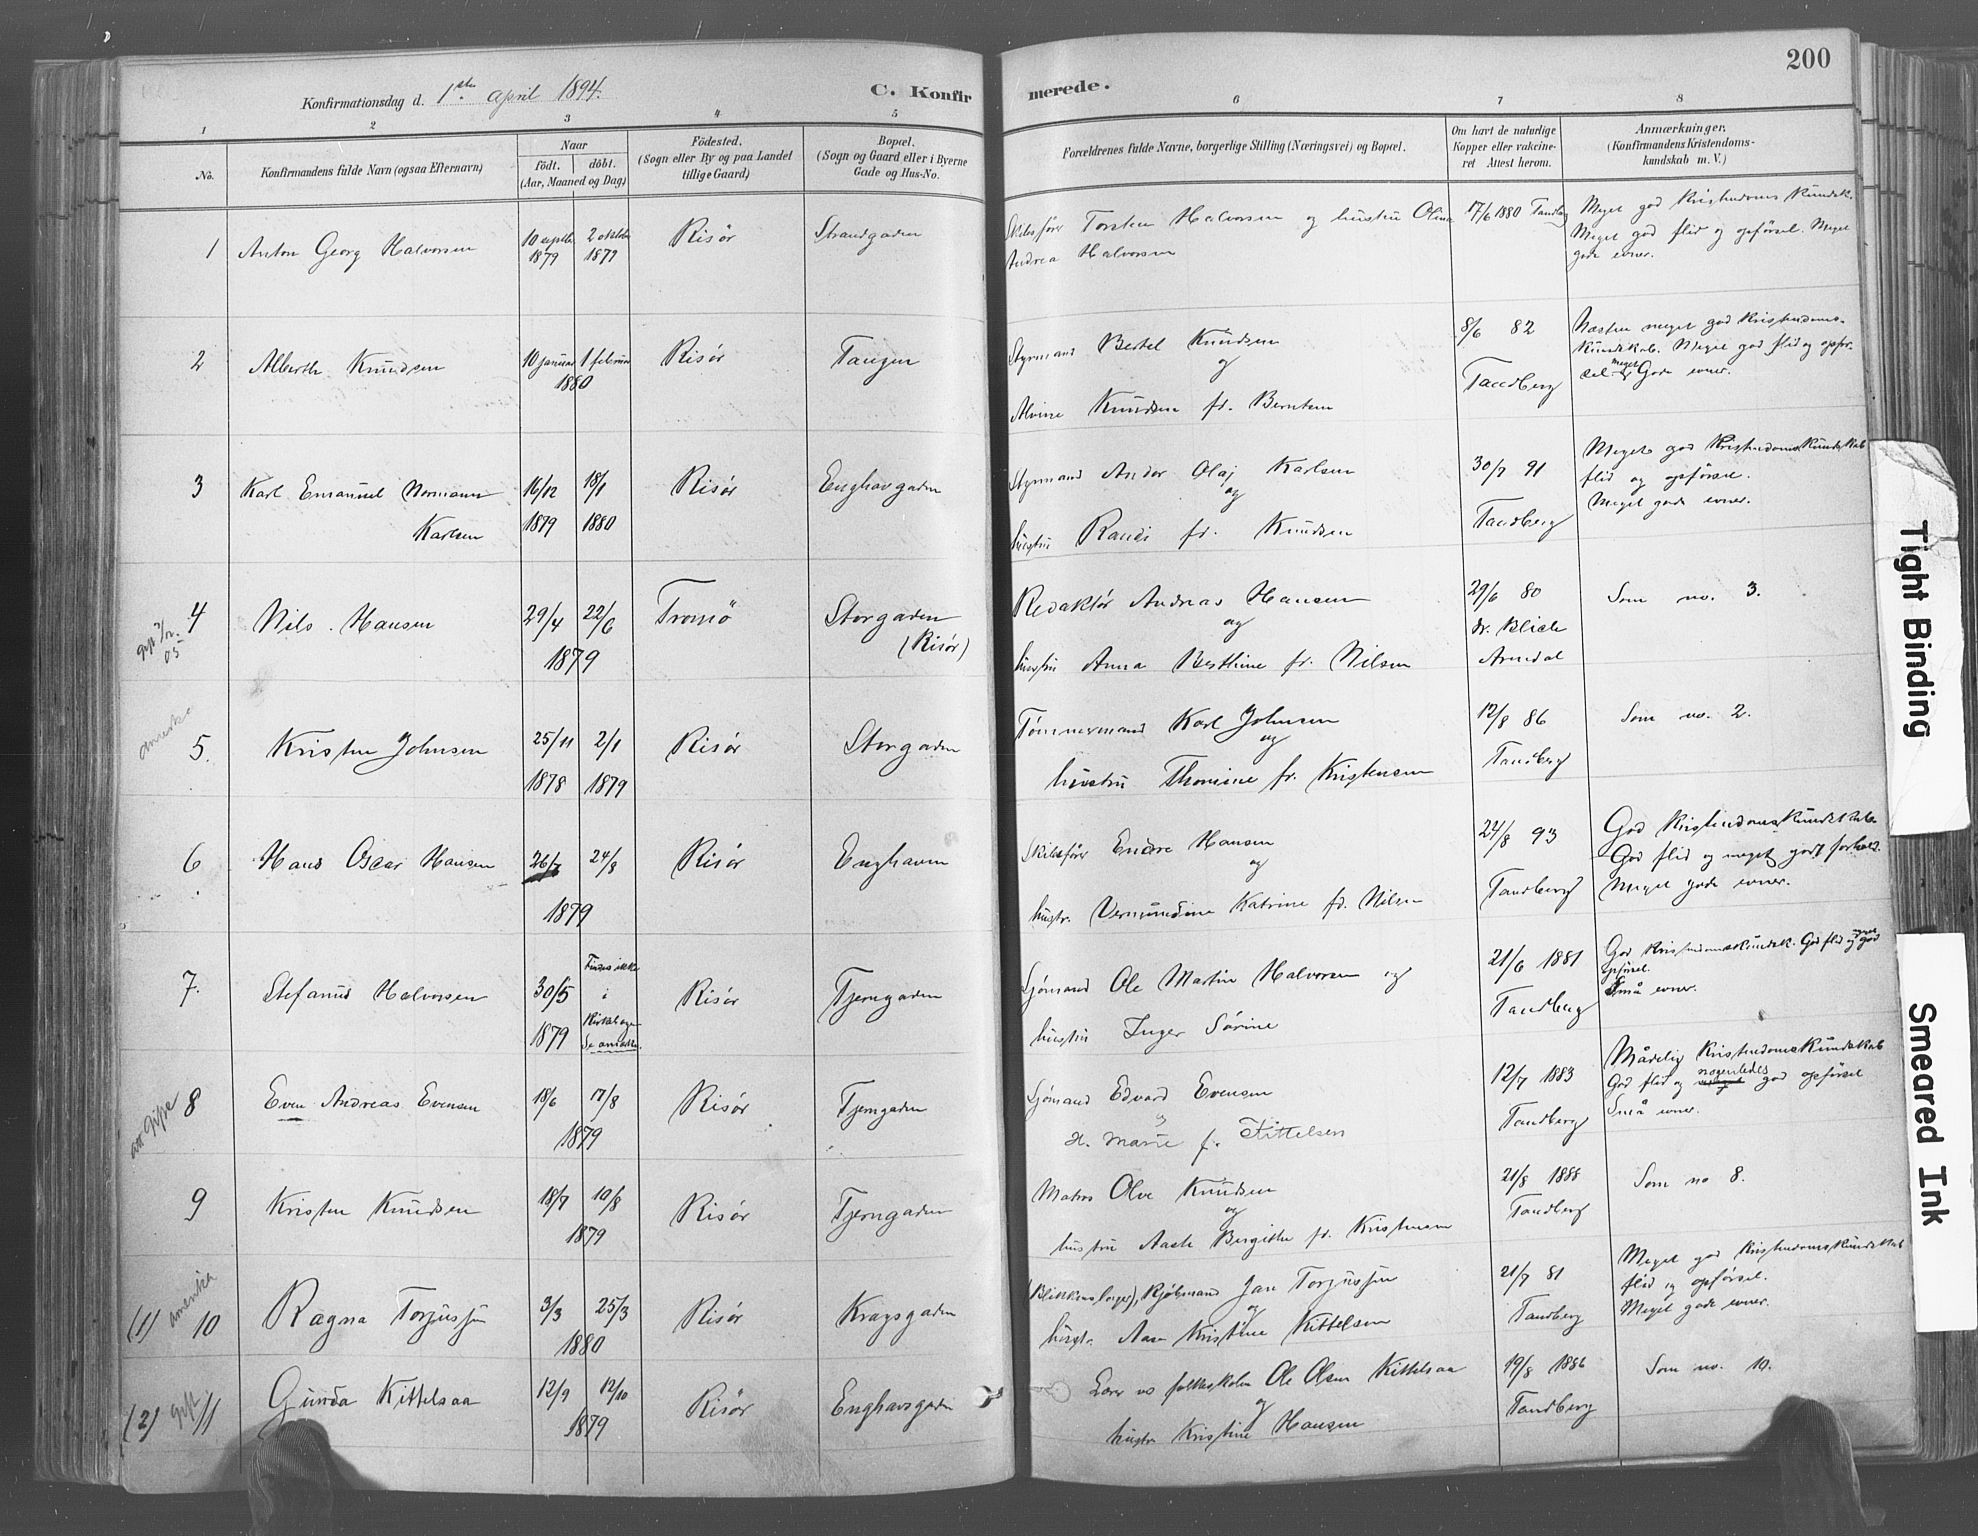 200
Konfirmationsdag d. 1ste April 1894.
C. Konfirmerede.
1 2 3 4 5 6 7 8
No.
Konfirmandens fulde Navn (ogsaa Efternavn)
Naar
födt. döbt.
(Aar, Maaned og Dag)
Födested.
(Sogn eller By og paa Landet
tillige Gaard)
Bopæl.
(Sogn og Gaard eller i Byerne
Gade og Hus-No.
Forældrenes fulde Navne, borgerlige Stilling (Næringsvei) og Bopæl.
Om havt de naturlige
Kopper eller vakcine-
ret Attest herom.
Anmærkninger.
(Konfirmandens Kristendoms-
kundskab m. V.)
1 Anton Georg Halvorsen
10 septbr 1879
2 oktbr 1879
Risör
Strandgaden
Skibsfører Torsten Halvorsen og hustru Olina
Andrea Halvorsen
17/6 1880 Tandberg
Meget god Kristendoms Kundsk.
Meget god flid og opførsel. Meget
gode evner.
2 Alberth Knudsen
10 januar 1 februar
1880
Risör
Tangen
Styrmand Bertel Knudsen
og
Alvine Knudsen fd. Berntsen
8/6 82
Tandberg
Næsten meget god Kristendoms-
kundskab. Meget god flid og opfør-
sel. meget Gode evner.
3 Karl Emanuel Normann
Karlsen
16/12 1879
18/1 1880
Risör
Enghavgaden
Styrmand Andor Olaj Karlsen
og
hustru Randi fd. Knudsen
30/7 91
Tandberg
Meget god Kristendoms Kundskab
flid og opførsel.
Meget gode evner.
gift
05
4 Nils Hansen
29/4 22/6
1879
Tromö
Storgaden
(Risør)
Redaktör Andreas Hansen
og
hustru Anna Berthine fd. Nilsen
29/6 80
dr. Blich
Arendal
Som no. 3.
5. Kristen Johnsen
25/11 1878
2/1 1879
Risör
Storgaden
Tømmermand Karl Johnsen
og
hustru Thomine fd. Kristensen
12/8 86
Tandberg
Som no. 2.
6 Hans Oscar Hansen
26/7 24/8
1879
Risör
Enghaven
Skibsfører Endre Hansen
og
hustr. Vermundine Katrine fd. Nilsen
24/8 93
Tandberg
God Kristendoms Kundskab
God flid og meget godt forhold.
Meget gode evner.
7. Stefanus Halvorsen
30/5
1879
Findes ikke
i
Risör
Tjerngaden
Sjömand Ole Martin Halvorsen og
hustru Inger Sörine
21/6 1881
Tandberg
God Kristendomskundsk. God flid og god
opførsel.
Små evner.
8 Even Andreas Evensen
18/6 17/8
1879
Risör
Tjerngaden
Sjömand Edvard Evensen
og
H. Marie f. Kittelsen
12/7 1883
Tandberg
Mådelig Kristendoms Kundskab
God flid og nogenledes god opførsel
Små evner.
9 Kristen Knudsen
18/7 10/8
1879
Risör
Tjerngaden
Matros Olve Knudsen
og
hustru Aase Birgithe fd. Kristensen
21/8 1888
Tandberg
Som no 8.
(1) amerika 10 Ragna Torjussen
3/3 25/3
1880
Risör
Kragsgaden
(Blikkenslager), Kjøbmand Jan Torjussen
og
hustr. Aase Kristine Kittelsen
21/7 81
Tandberg
Meget god Kristendomskundskab
flid og opførsel.
Meget gode evner.
(2) gift 11 Gunda Kittelsaa
12/9 12/10
1879
Risör
Enghavsgaden
Lærer vs folkeskolen Ole Olsen Kittelsaa
og
hustr. Kristine Hansen
19/8 1886
Tandberg
Som no. 10.
Tight Binding
Smeared Ink